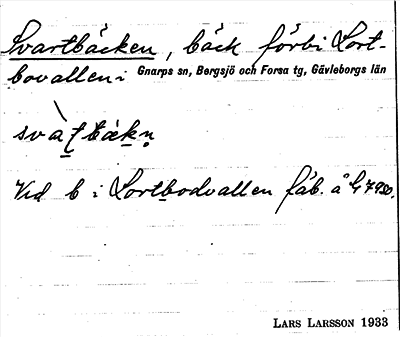 Svartbäcken, bäck förbi Lort-
bovallen i Gnarps sn, Bergsjö och Forsa tg, Gävleborgs län
Vid b i Lortbodvallen fäb. å
LARS LARSSON 1933